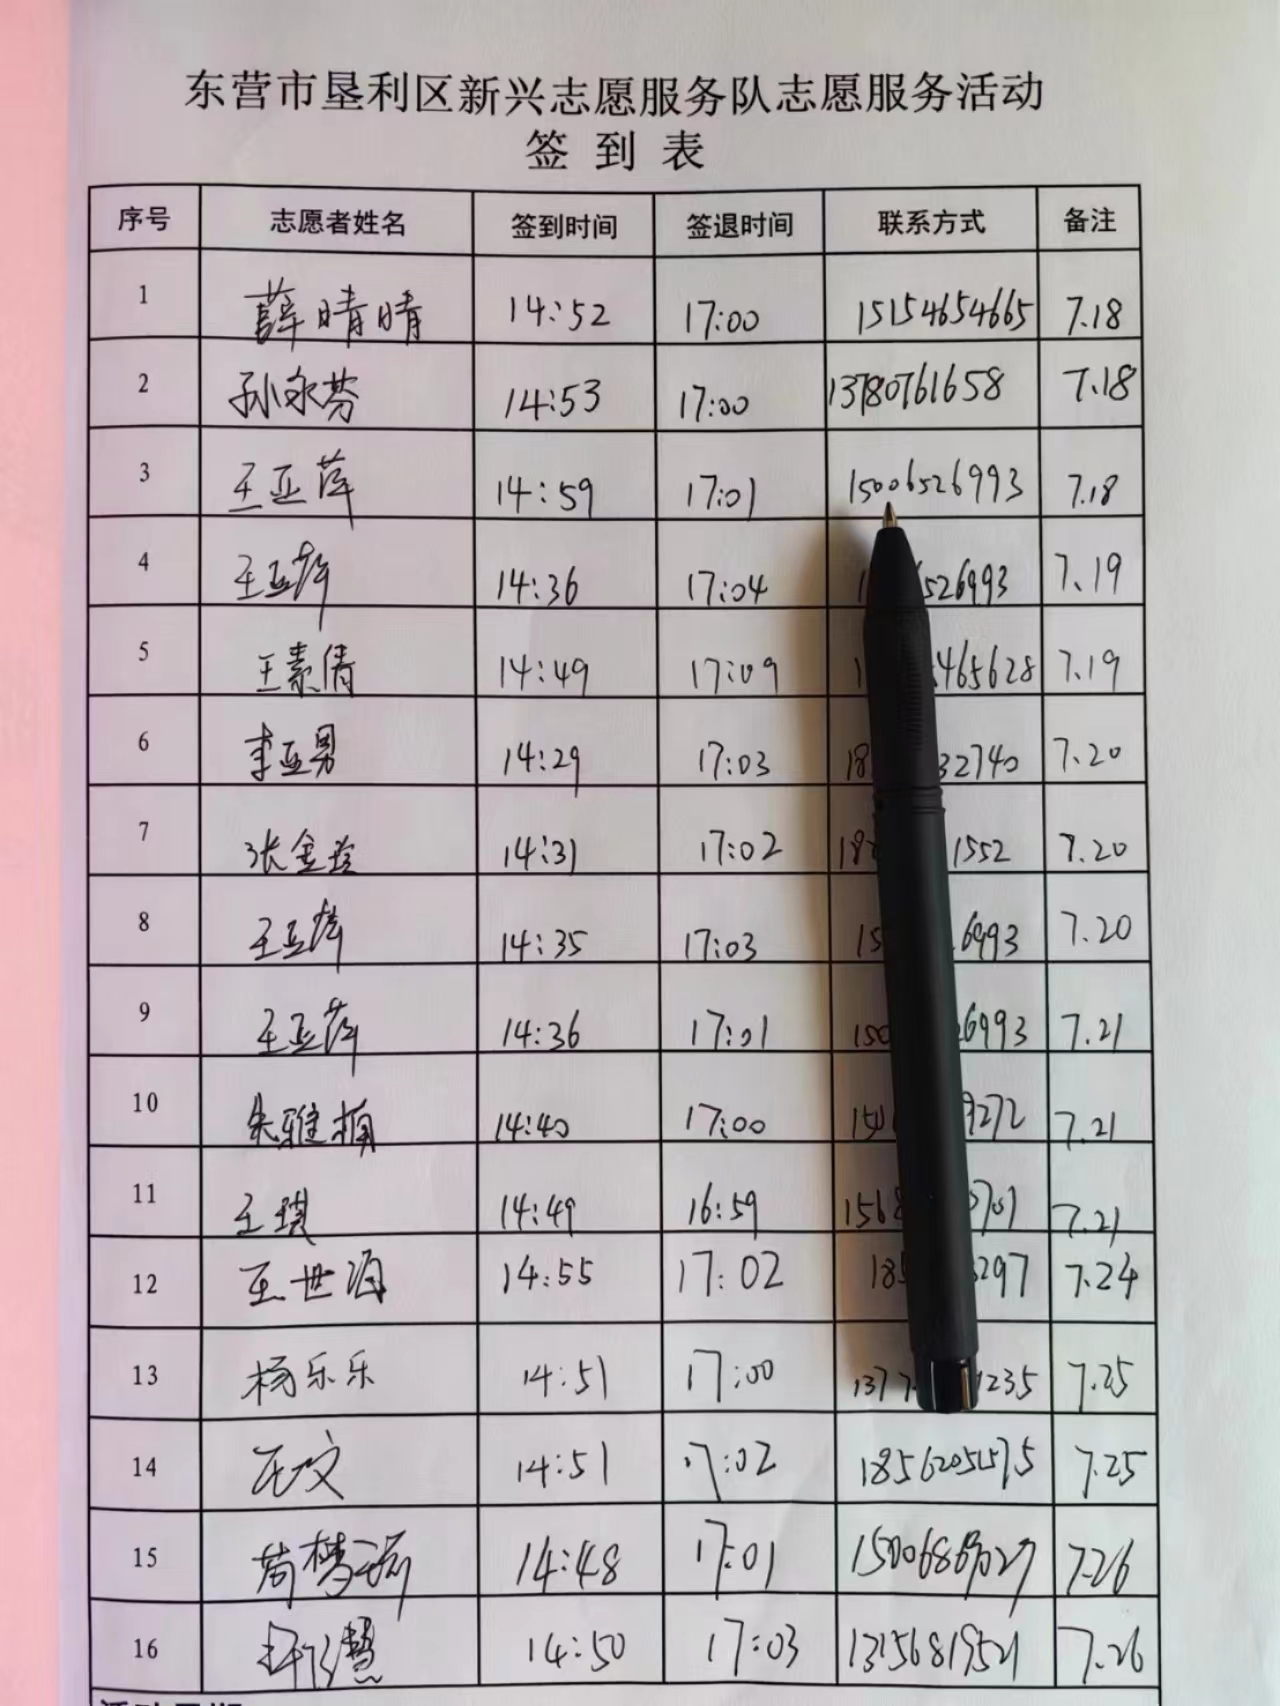 东营市垦利区新兴志愿服务队志愿服务活动
签到表
序号 志愿者姓名 签到时间 签退时间 联系方式 备注
1 薛晴晴 14:52 17:00 15154654665 7.18
2 孙永芬 14:53 17:00 13780761658 7.18
3 王亚萍 14:59 17:01 15006526993 7.18
4 王亚萍 14:36 17:04 526993 7.19
5 王素倩 14:49 17:09 465628 7.19
6 李亚男 14:29 17:03 18 32740 7.20
7 张金玲 14:31 17:02 18 1552 7.20
8 王亚萍 14:35 17:03 15 6993 7.20
9 王亚萍 14:36 17:01 150 26993 7.21
10 朱雅楠 14:40 17:00 15 9272 7.21
11 王琪 14:49 16:59 1568 701 7.21
12 王世海 14:55 17:02 18 297 7.24
13 杨乐乐 14:51 17:00 137 1235 7.25
14 14:51 17:02 7.25
15 14:48 17:01 7.26
16 14:50 17:03 13156819521 7.26